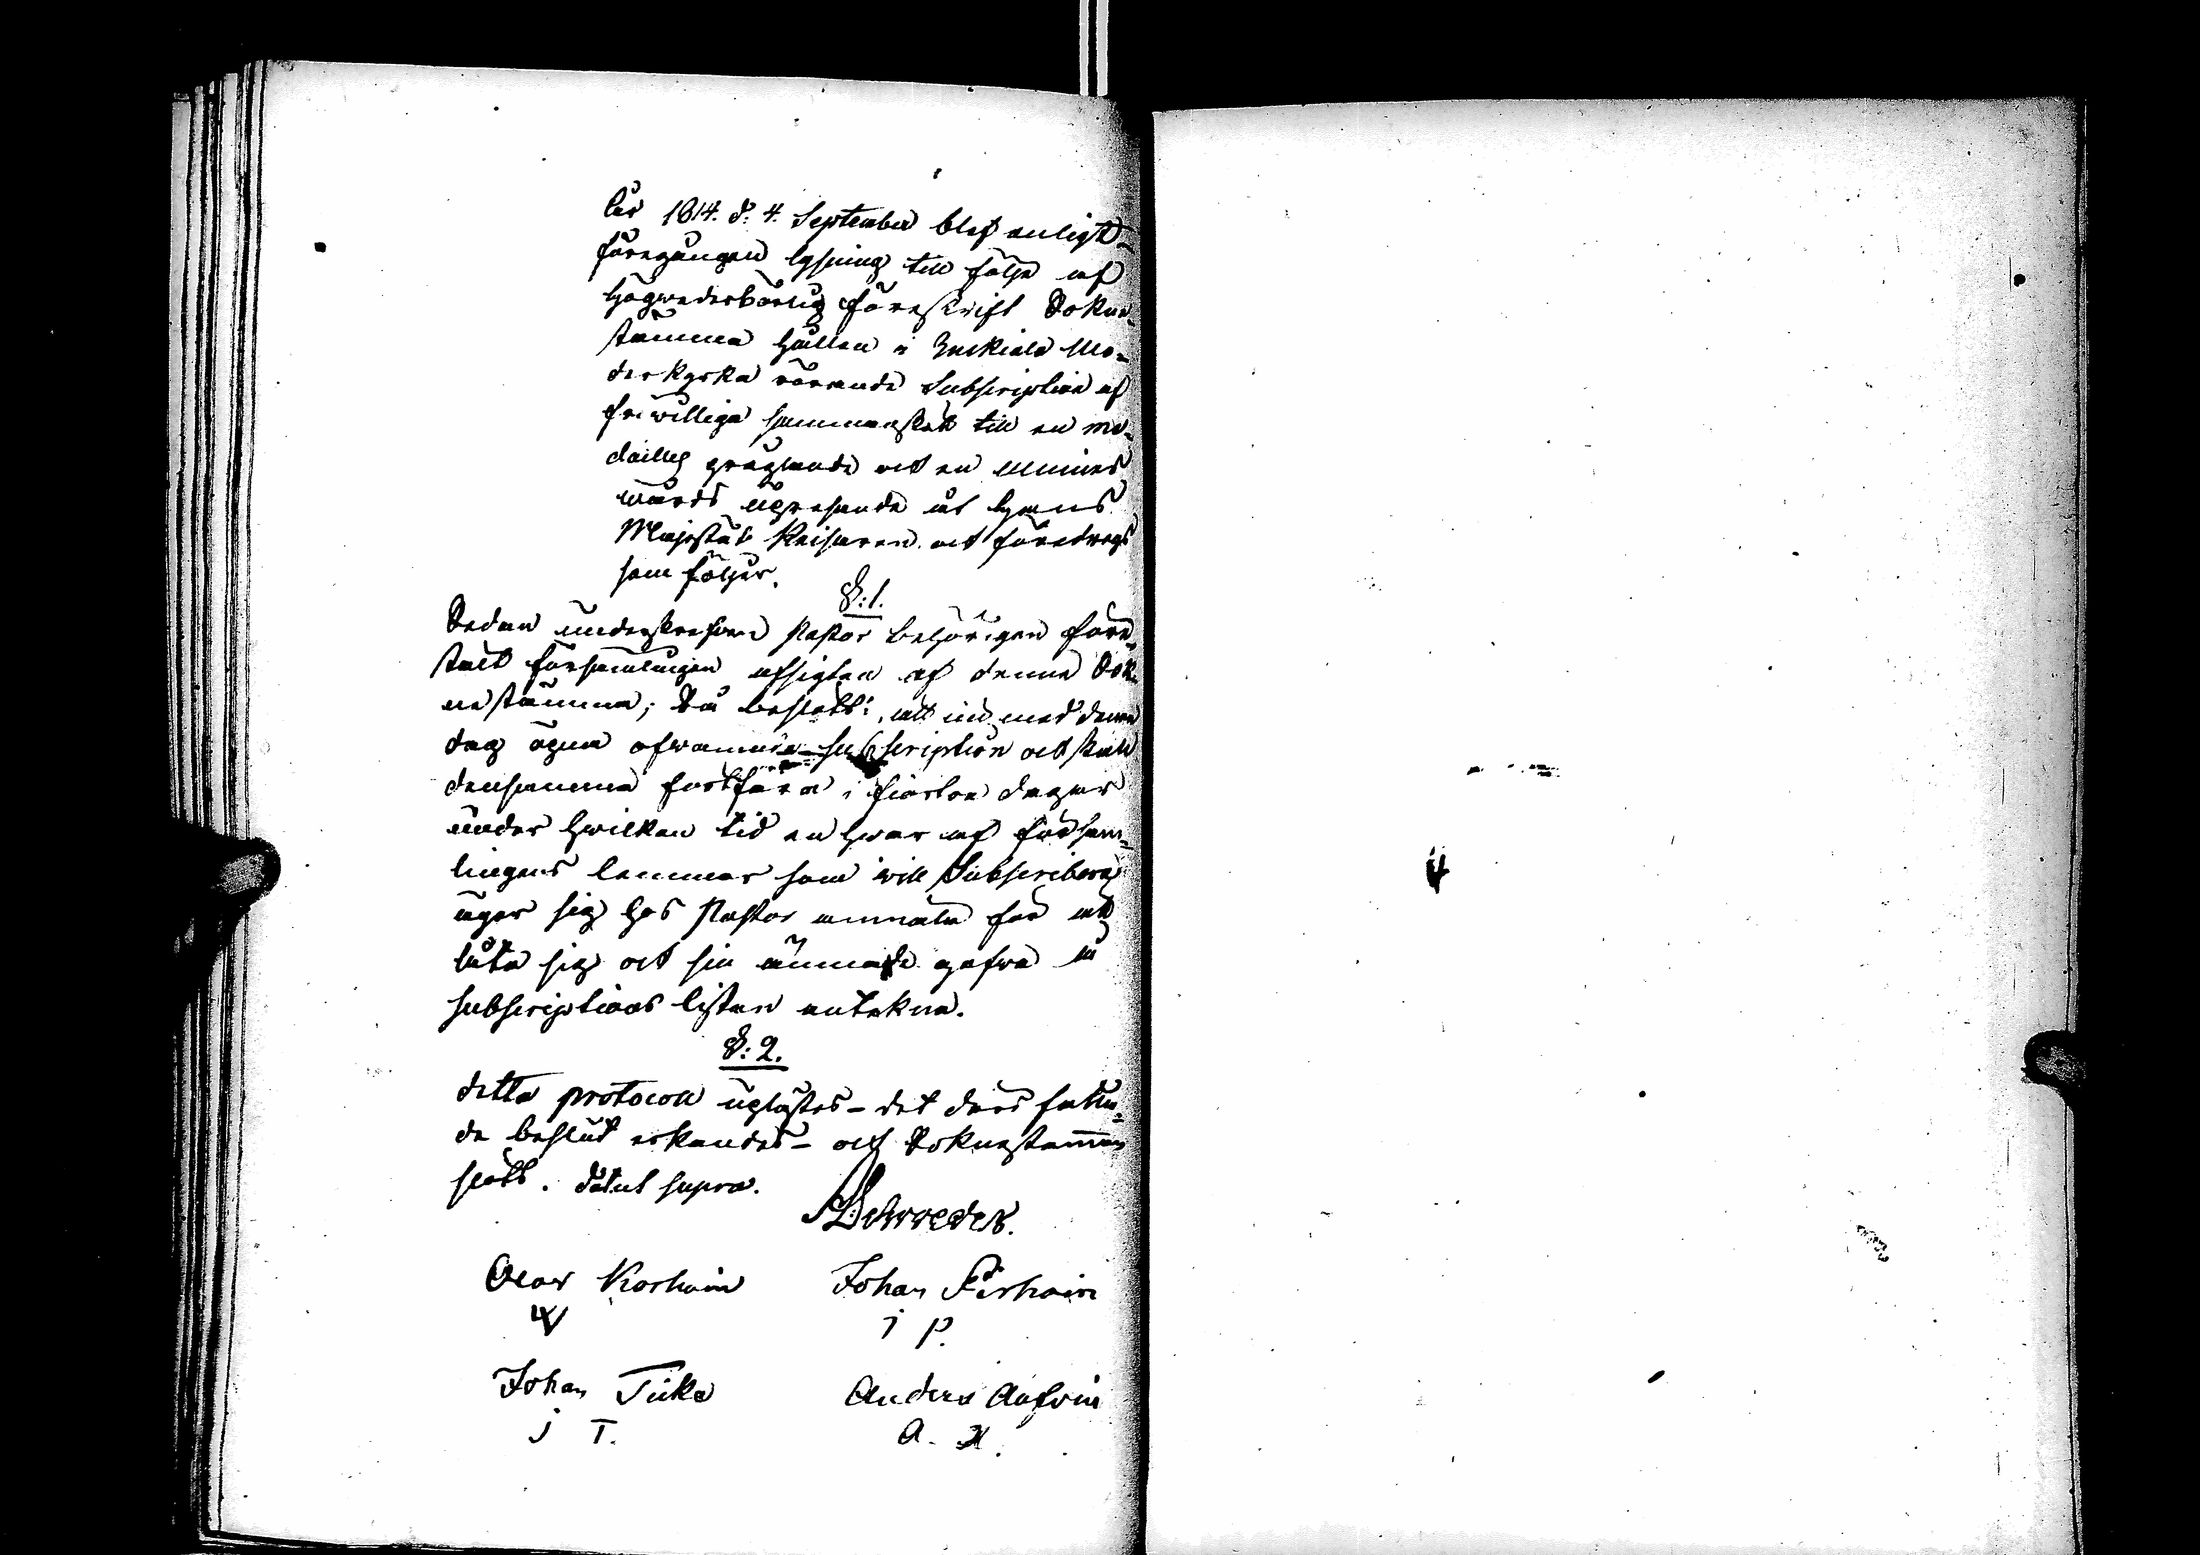 År 1814. d: 4. September blef enligt
föregången lysning till följe af
högwederbörlig föreskrift Sokne-
stämma hållen i Mo-
derkyrka rörande Subscription af
friwilliga sammanskott till en me-
daillej präglande och en Minnes
wårds upresande åt hans
Majestät Keisaren och företogs
som följer.
§: 1.
Sedan underskrefwen Pastor behörigen före-
stält församlingen afsigten af denna Sok-
nestämma; Så beslöts: att med denna
dag öpna ofwannämde subscription och skall
densamma fortfara i fiorton dagar
under hwilken tid en hwar af försam-
lingens lemmar som will Subscribera
äger sig hos Pastor anmäla för att
låta sig och sin ämnade gåfwa i
subscriptions listan antekna.
§: 2.
detta protocoll uplästes - det ders fattu-
de beslut erkändes - och Soknestämman
slöts. datut supra.
Schroeder.
Olov Korhoin Johan
j P.
Johan Tiika Anders
j T. A. H.